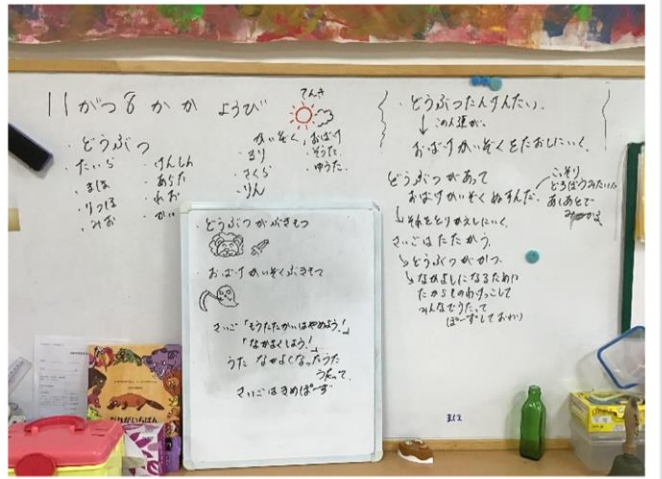 11がつ8かか ようび
てんき
・どうぶつ
・たいら
・まほ
・りっほ
・みお
・けんしん
・あらた
・れお
・かい
かいぞく
・まり
・さくら
・りん
おばけ
・そうた
・ゆうた
・どうぶつたんけんたい.
↓この人達が、
おばけかいぞくをたおしにいく.
どうぶつがあって
おばけかいぞくぬすんだ.
こっそり
どろぼうみたいに
あしあとで
↳それをとりかえしにいく.
さいごはたたかう.
↳どうぶつがかつ.
↳なかよしになるために
たからものわけっこして
みんなでうたって
ぽーずしておわり
・どうぶつがぶきもつ
・おばけかいぞくぶきもつ
さいご「もうたたかいはやめよう!」
「なかよくしよう!」
うた なかよくなったうた
うたって.
さいごはきめぽーず